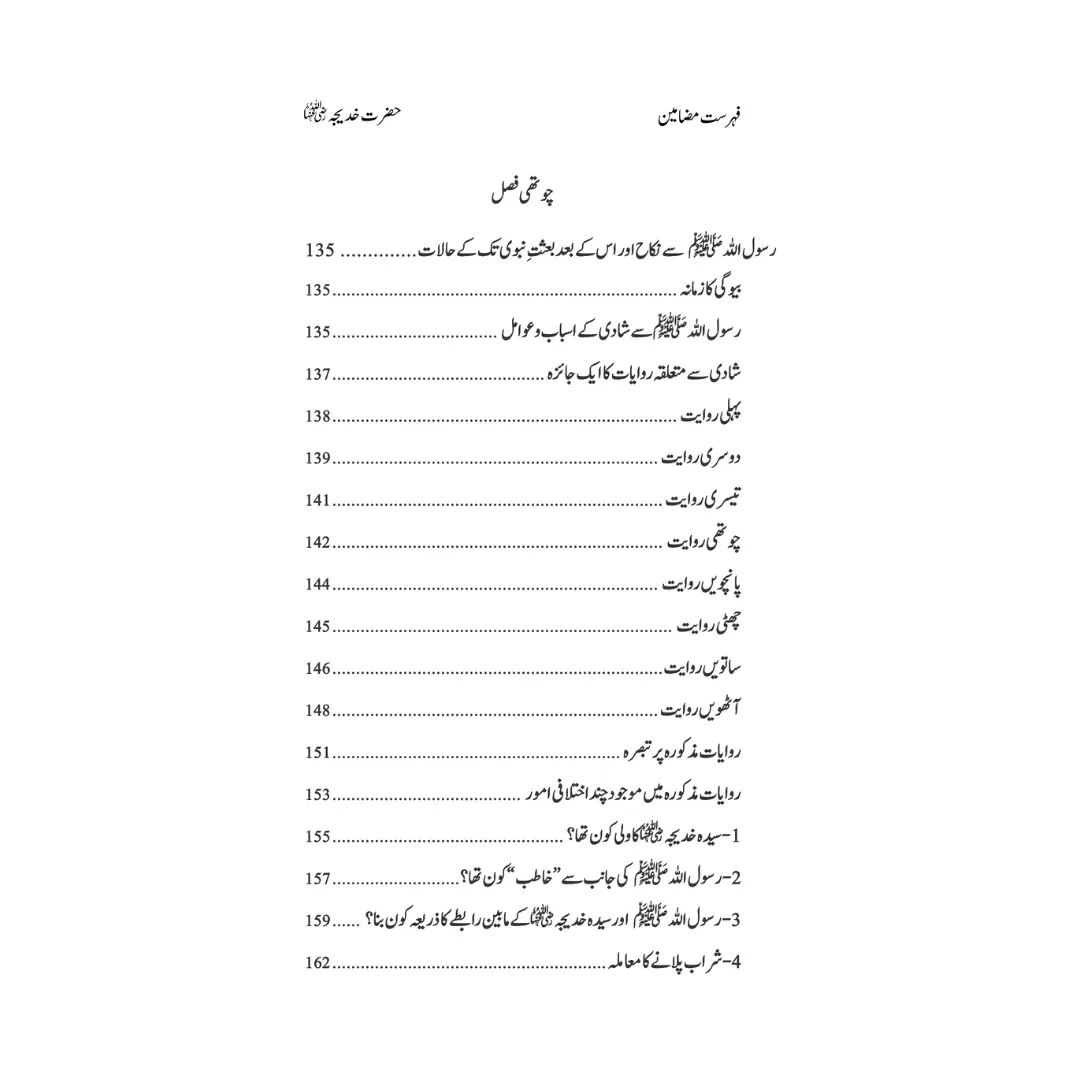 فہرست مضامین حضرت خدیجہ رضی اللہ عنہا
چوتھی فصل
رسول اللہ ﷺ سے نکاح اور اس کے بعد بعثتِ نبوی تک کے حالات.............. 135
بیوگی کا زمانہ ......................................................................... 135
رسول اللہ ﷺ سے شادی کے اسباب و عوامل ................................... 135
شادی سے متعلقہ روایات کا ایک جائزہ ............................................. 137
پہلی روایت ......................................................................... 138
دوسری روایت ..................................................................... 139
تیسری روایت ...................................................................... 141
چوتھی روایت ...................................................................... 142
پانچویں روایت ..................................................................... 144
چھٹی روایت ........................................................................ 145
ساتویں روایت...................................................................... 146
آٹھویں روایت ..................................................................... 148
روایات مذکورہ پر تبصرہ ............................................................. 151
روایات مذکورہ میں موجود چند اختلافی امور ........................................ 153
1-سیدہ خدیجہ رضی اللہ عنہا کا ولی کون تھا؟ ................................................. 155
2-رسول اللہ ﷺ کی جانب سے ”خاطب“ کون تھا؟........................... 157
3-رسول اللہ ﷺ اور سیدہ خدیجہ رضی اللہ عنہا کے مابین رابطے کا ذریعہ کون بنا؟ ...... 159
4-شراب پلانے کا معاملہ.......................................................... 162